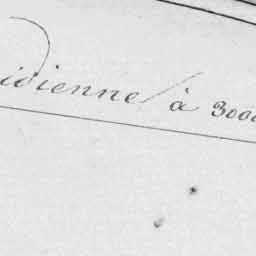 idienne à 300